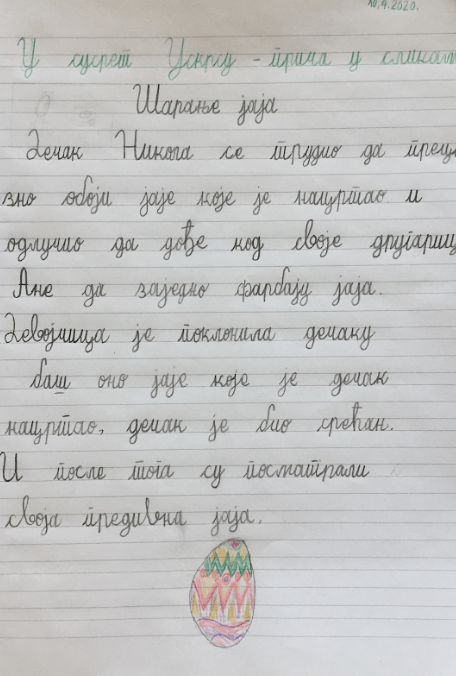 10.4.2020.
У сусрет Ускрсу - прича у сликам
Шарање јаја
Дечак Никога се трудио да преци
зно обоји јаје које је нацртао и
одлучио да дође код своје другариц
Ане да заједно фарбају јаја.
Девојчица је поклонила дечаку
баш оно јаје које је дечак
нацртао, дечак је био срећан.
И после тога су посматрали
своја предивна јаја.